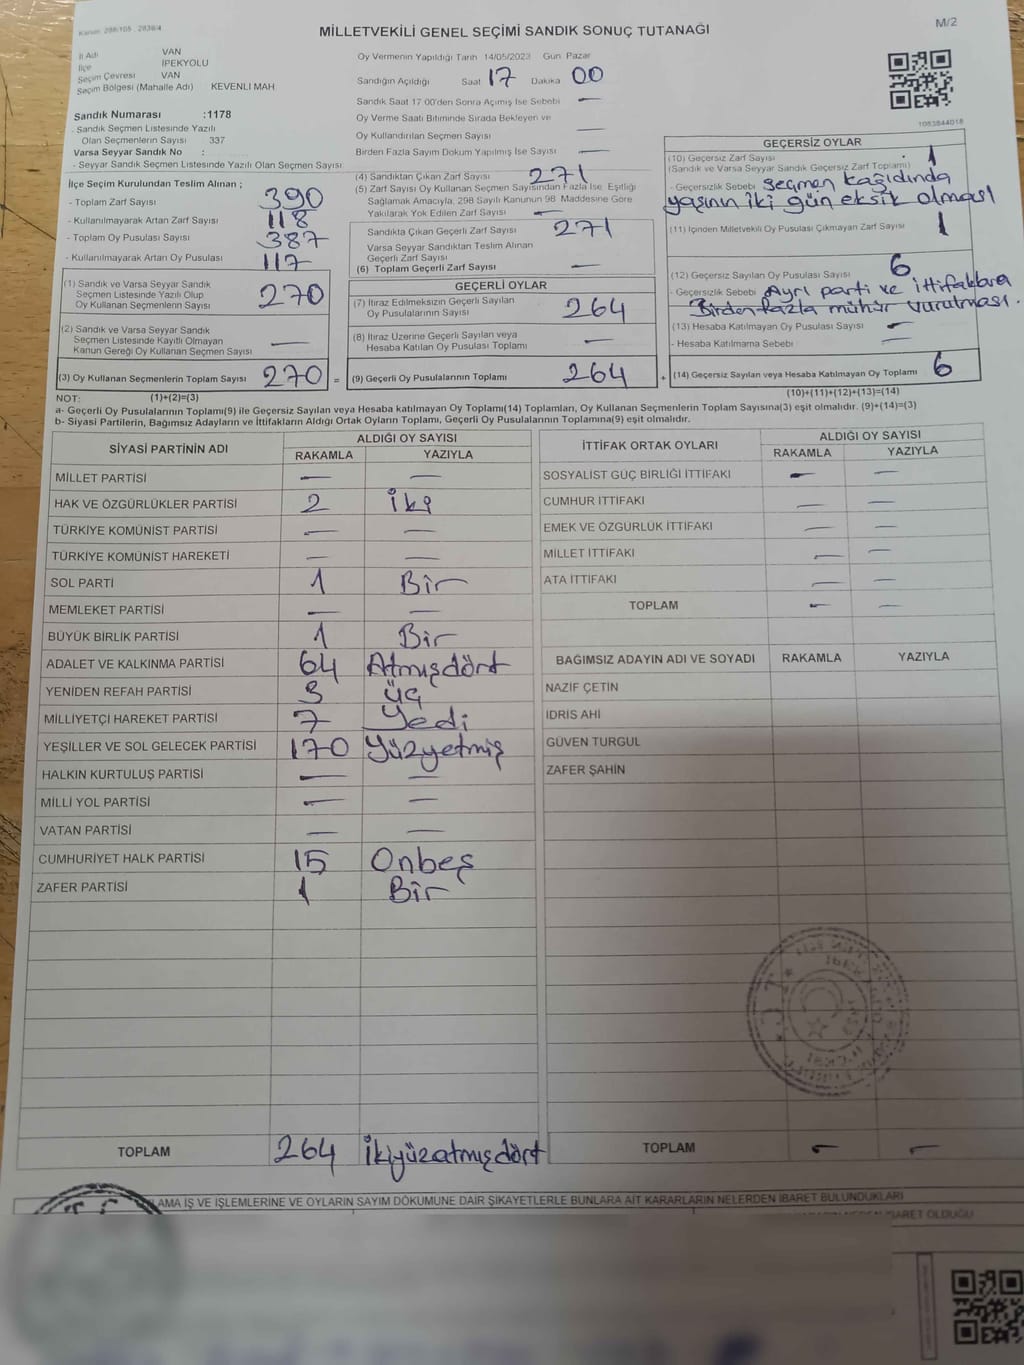 Kanun: 298/105 , 2839/4
MİLLETVEKİLİ GENEL SEÇİMİ SANDIK SONUÇ TUTANAĞI
M/2
İl Adı VAN
İlçe İPEKYOLU
Seçim Çevresi VAN
Seçim Bölgesi (Mahalle Adı) KEVENLİ MAH.
Sandık Numarası :1178
- Sandık Seçmen Listesinde Yazılı
Olan Seçmenlerin Sayısı : 337
Varsa Seyyar Sandık No :
- Seyyar Sandık Seçmen Listesinde Yazılı Olan Seçmen Sayısı:
İlçe Seçim Kurulundan Teslim Alınan ;
- Toplam Zarf Sayısı 390
- Kullanılmayarak Artan Zarf Sayısı 118
- Toplam Oy Pusulası Sayısı 387
- Kullanılmayarak Artan Oy Pusulası 117
(1) Sandık ve Varsa Seyyar Sandık
Seçmen Listesinde Yazılı Olup
Oy Kullanan Seçmenlerin Sayısı 270
(2) Sandık ve Varsa Seyyar Sandık
Seçmen Listesinde Kayıtlı Olmayan
Kanun Gereği Oy Kullanan Seçmen Sayısı —
(3) Oy Kullanan Seçmenlerin Toplam Sayısı 270 =
Oy Vermenin Yapıldığı Tarih 14/05/2023 Gün Pazar
Sandığın Açıldığı Saat 17 Dakika 00
Sandık Saat 17.00'den Sonra Açılmış İse Sebebi —
Oy Verme Saati Bitiminde Sırada Bekleyen ve
Oy Kullandırılan Seçmen Sayısı —
Birden Fazla Sayım Döküm Yapılmış İse Sayısı —
(4) Sandıktan Çıkan Zarf Sayısı 271
(5) Zarf Sayısı Oy Kullanan Seçmen Sayısından Fazla İse, Eşitliği
Sağlamak Amacıyla, 298 Sayılı Kanunun 98. Maddesine Göre
Yakılarak Yok Edilen Zarf Sayısı —
Sandıkta Çıkan Geçerli Zarf Sayısı 271
Varsa Seyyar Sandıktan Teslim Alınan
Geçerli Zarf Sayısı
(6) Toplam Geçerli Zarf Sayısı —
GEÇERLİ OYLAR
(7) İtiraz Edilmeksizin Geçerli Sayılan
Oy Pusulalarının Sayısı 264
(8) İtiraz Üzerine Geçerli Sayılan veya
Hesaba Katılan Oy Pusulası Toplamı —
(9) Geçerli Oy Pusulalarının Toplamı 264 +
1083844018
GEÇERSİZ OYLAR
(10) Geçersiz Zarf Sayısı 1
(Sandık ve Varsa Seyyar Sandık Geçersiz Zarf Toplamı)
- Geçersizlik Sebebi Seçmen kağıdında
yaşının iki gün eksik olması
(11) İçinden Milletvekili Oy Pusulası Çıkmayan Zarf Sayısı 1
(12) Geçersiz Sayılan Oy Pusulası Sayısı 6
- Geçersizlik Sebebi Ayrı parti ve ittifaklara
Birden fazla mühür vurulması.
(13) Hesaba Katılmayan Oy Pusulası Sayısı —
- Hesaba Katılmama Sebebi —
(14) Geçersiz Sayılan veya Hesaba Katılmayan Oy Toplamı 6
NOT: (1)+(2)=(3) (10)+(11)+(12)+(13)=(14)
a- Geçerli Oy Pusulalarının Toplamı(9) ile Geçersiz Sayılan veya Hesaba katılmayan Oy Toplamı(14) Toplamları, Oy Kullanan Seçmenlerin Toplam Sayısına(3) eşit olmalıdır. (9)+(14)=(3)
b- Siyasi Partilerin, Bağımsız Adayların ve İttifakların Aldığı Ortak Oyların Toplamı, Geçerli Oy Pusulalarının Toplamına(9) eşit olmalıdır.
SİYASİ PARTİNİN ADI ALDIĞI OY SAYISI
RAKAMLA YAZIYLA
MİLLET PARTİSİ — —
HAK VE ÖZGÜRLÜKLER PARTİSİ 2 İki
TÜRKİYE KOMÜNİST PARTİSİ — —
TÜRKİYE KOMÜNİST HAREKETİ — —
SOL PARTİ 1 Bir
MEMLEKET PARTİSİ — —
BÜYÜK BİRLİK PARTİSİ 1 Bir
ADALET VE KALKINMA PARTİSİ 64 Atmışdört
YENİDEN REFAH PARTİSİ 3 üç
MİLLİYETÇİ HAREKET PARTİSİ 7 Yedi
YEŞİLLER VE SOL GELECEK PARTİSİ 170 Yüzyetmiş
HALKIN KURTULUŞ PARTİSİ — —
MİLLİ YOL PARTİSİ — —
VATAN PARTİSİ — —
CUMHURİYET HALK PARTİSİ 15 Onbeş
ZAFER PARTİSİ 1 Bir
TOPLAM 264 İkiyüzatmışdört
İTTİFAK ORTAK OYLARI ALDIĞI OY SAYISI
RAKAMLA YAZIYLA
SOSYALİST GÜÇ BİRLİĞİ İTTİFAKI — —
CUMHUR İTTİFAKI — —
EMEK VE ÖZGÜRLÜK İTTİFAKI — —
MİLLET İTTİFAKI — —
ATA İTTİFAKI — —
TOPLAM — —
BAĞIMSIZ ADAYIN ADI VE SOYADI RAKAMLA YAZIYLA
NAZİF ÇETİN
İDRİS AHİ
GÜVEN TURGUL
ZAFER ŞAHİN
TOPLAM — —
LAMA İŞ VE İŞLEMLERİNE VE OYLARIN SAYIM DÖKÜMÜNE DAİR ŞİKAYETLERLE BUNLARA AİT KARARLARIN NELERDEN İBARET BULUNDUKLARI